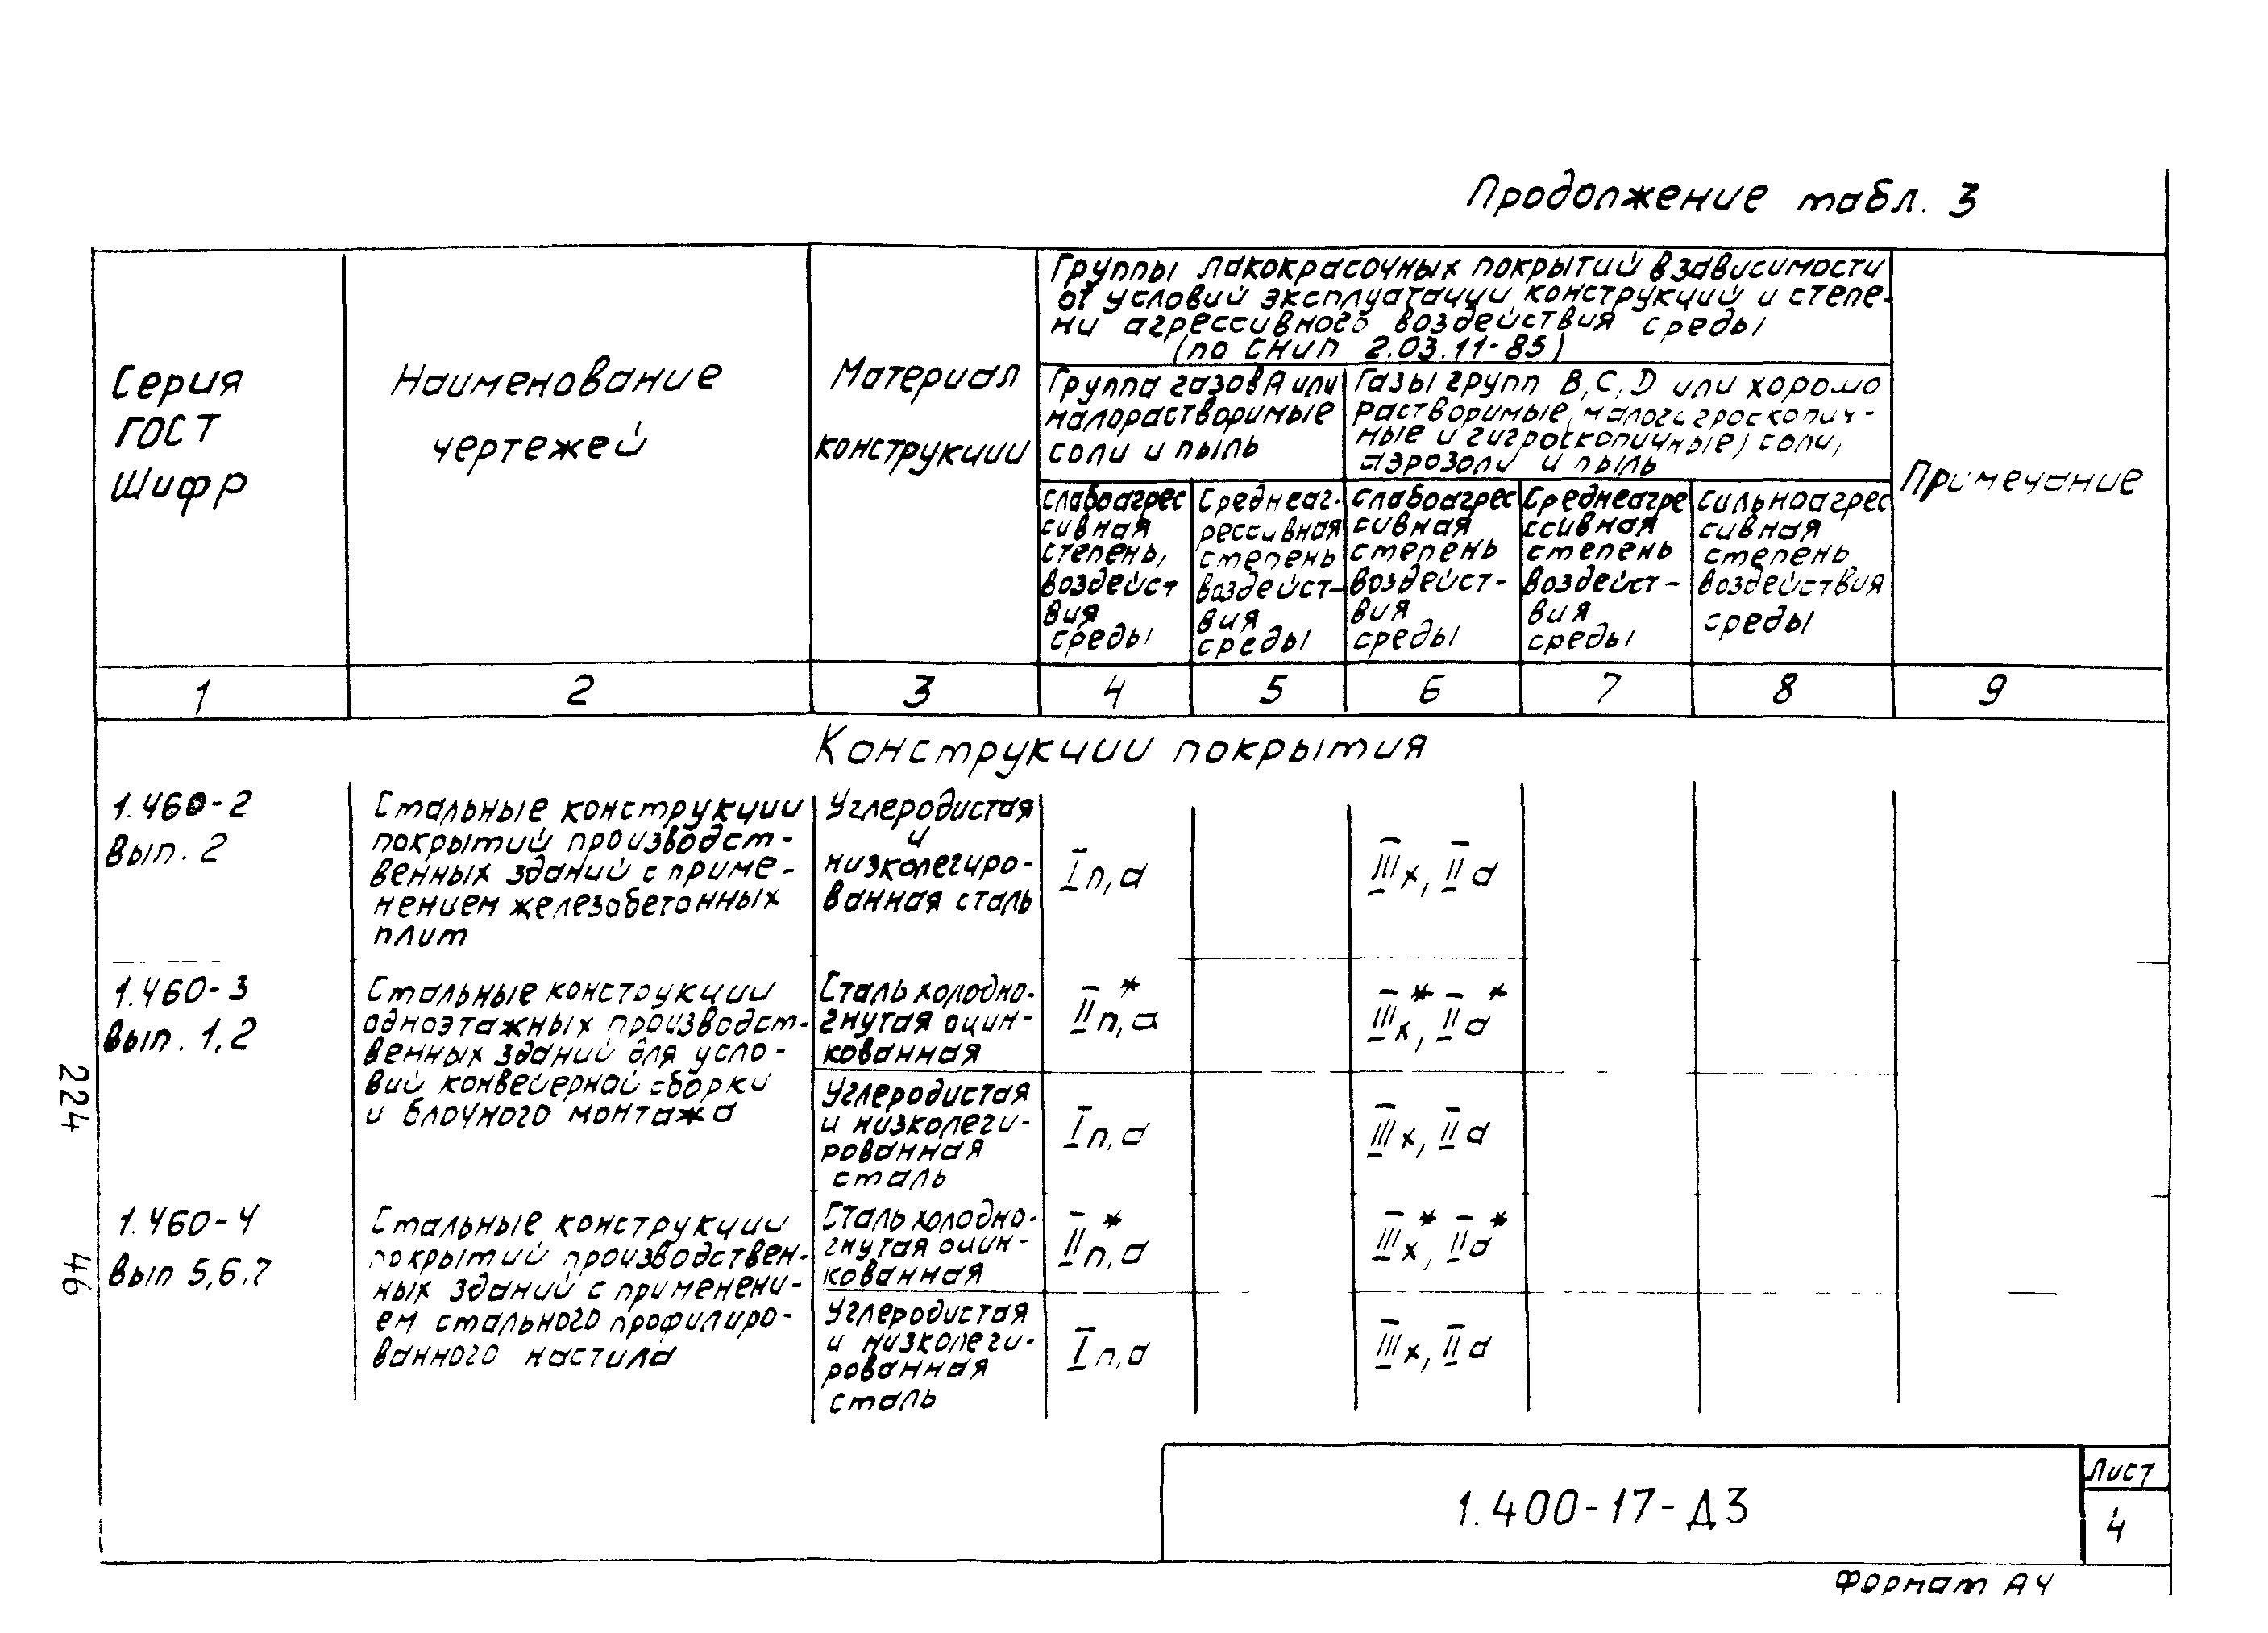 Продолжение табл. 3
Серия
ГОСТ
Шифр
Наименование
чертежей
Материал
конструкции
Группы лакокрасочных покрытий в зависимости
от условий эксплуатации конструкций и степе-
ни агрессивного воздействия среды
(по СНиП 2.03.11-85)
Группа газов А или
малорастворимые
соли и пыль
Газы групп В, С, D или хорошо
растворимые (малогигроскопич-
ные и гигроскопичные) соли,
аэрозоли и пыль
слабоагрес
сивная
степень,
воздейст
вия
среды
Среднеаг-
рессивная
степень
воздейст-
вия
среды
слабоагрес
сивная
степень
воздейст-
вия
среды
Среднеагре
ссивная
степень
воздейст-
вия
среды
сильноагрес
сивная
степень
воздействия
среды
Примечание
1 2 3 4 5 6 7 8 9
Конструкции покрытия
1.460-2
Вып. 2
Стальные конструкции
покрытий производст-
венных зданий с приме-
нением железобетонных
плит
Углеродистая
и
низколегиро-
ванная сталь
I п, а
III х, II а
1.460-3
Вып. 1,2
Стальные конструкции
одноэтажных производст-
венных зданий для усло-
вий конвейерной сборки
и блочного монтажа
Сталь холодно-
гнутая оцин-
кованная
II п, а*
III х*, II а*
Углеродистая
и низколеги-
рованная
сталь
I п, а
III х, II а
1.460-4
Вып 5,6,7
Стальные конструкции
покрытий производствен-
ных зданий с применени-
ем стального профилиро-
ванного настила
Сталь холодно-
гнутая оцин-
кованная
II п, а*
III х*, II а*
Углеродистая
и низколеги-
рованная
сталь
I п, а
III х, II а
224 46
1.400-17-Д3
Лист
4
Формат А4